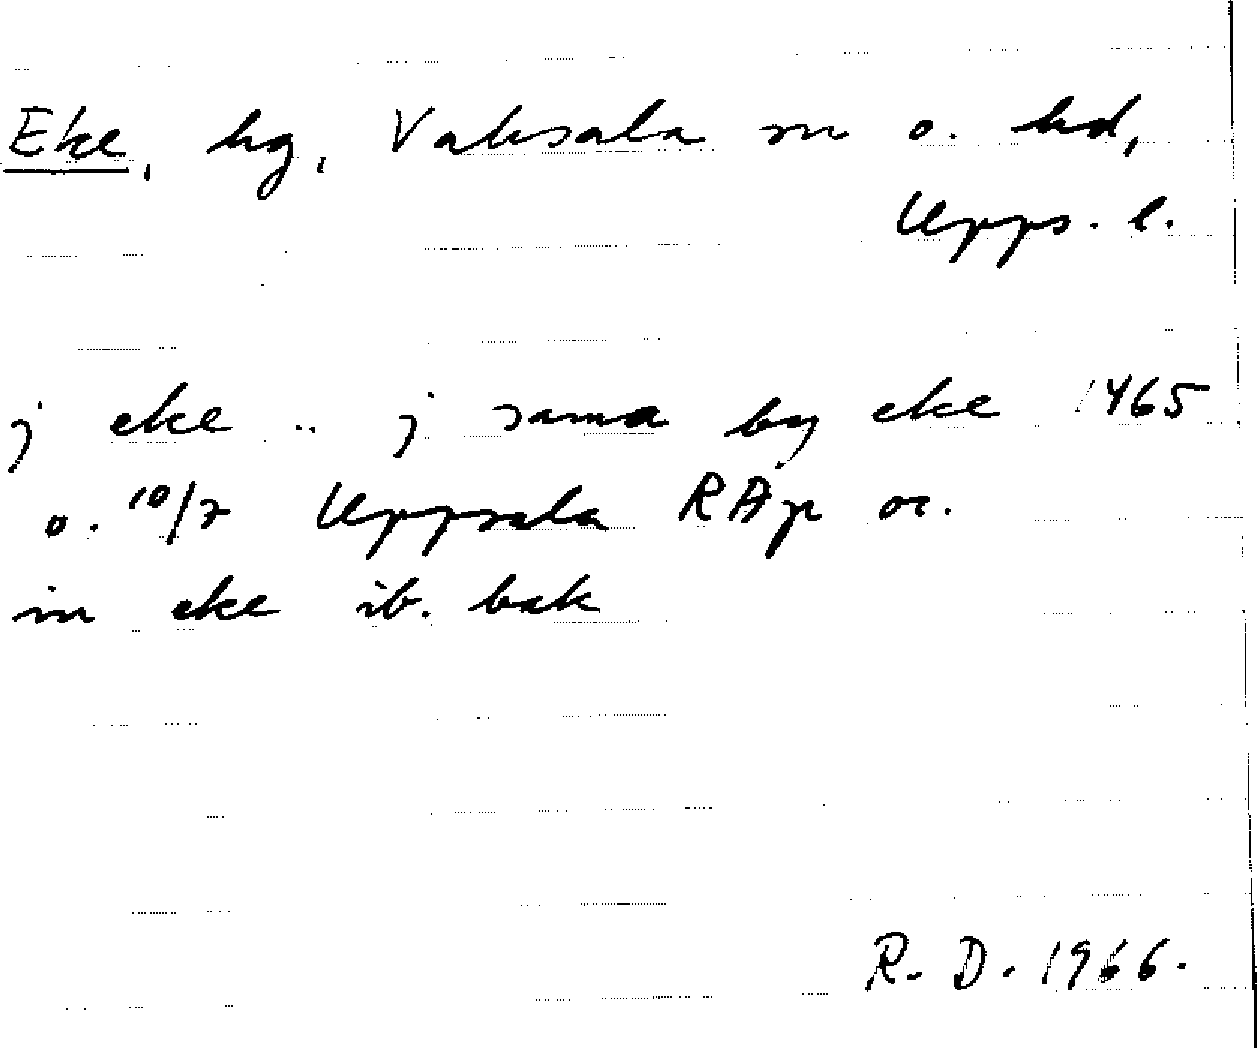 Eke, hg, Vaksala sn o. hd,
Upps. l.
j eke .. j sama by eke 1465
o. 10/2 Uppsala RAp or.
in eke ib. bak
R. D. 1966.